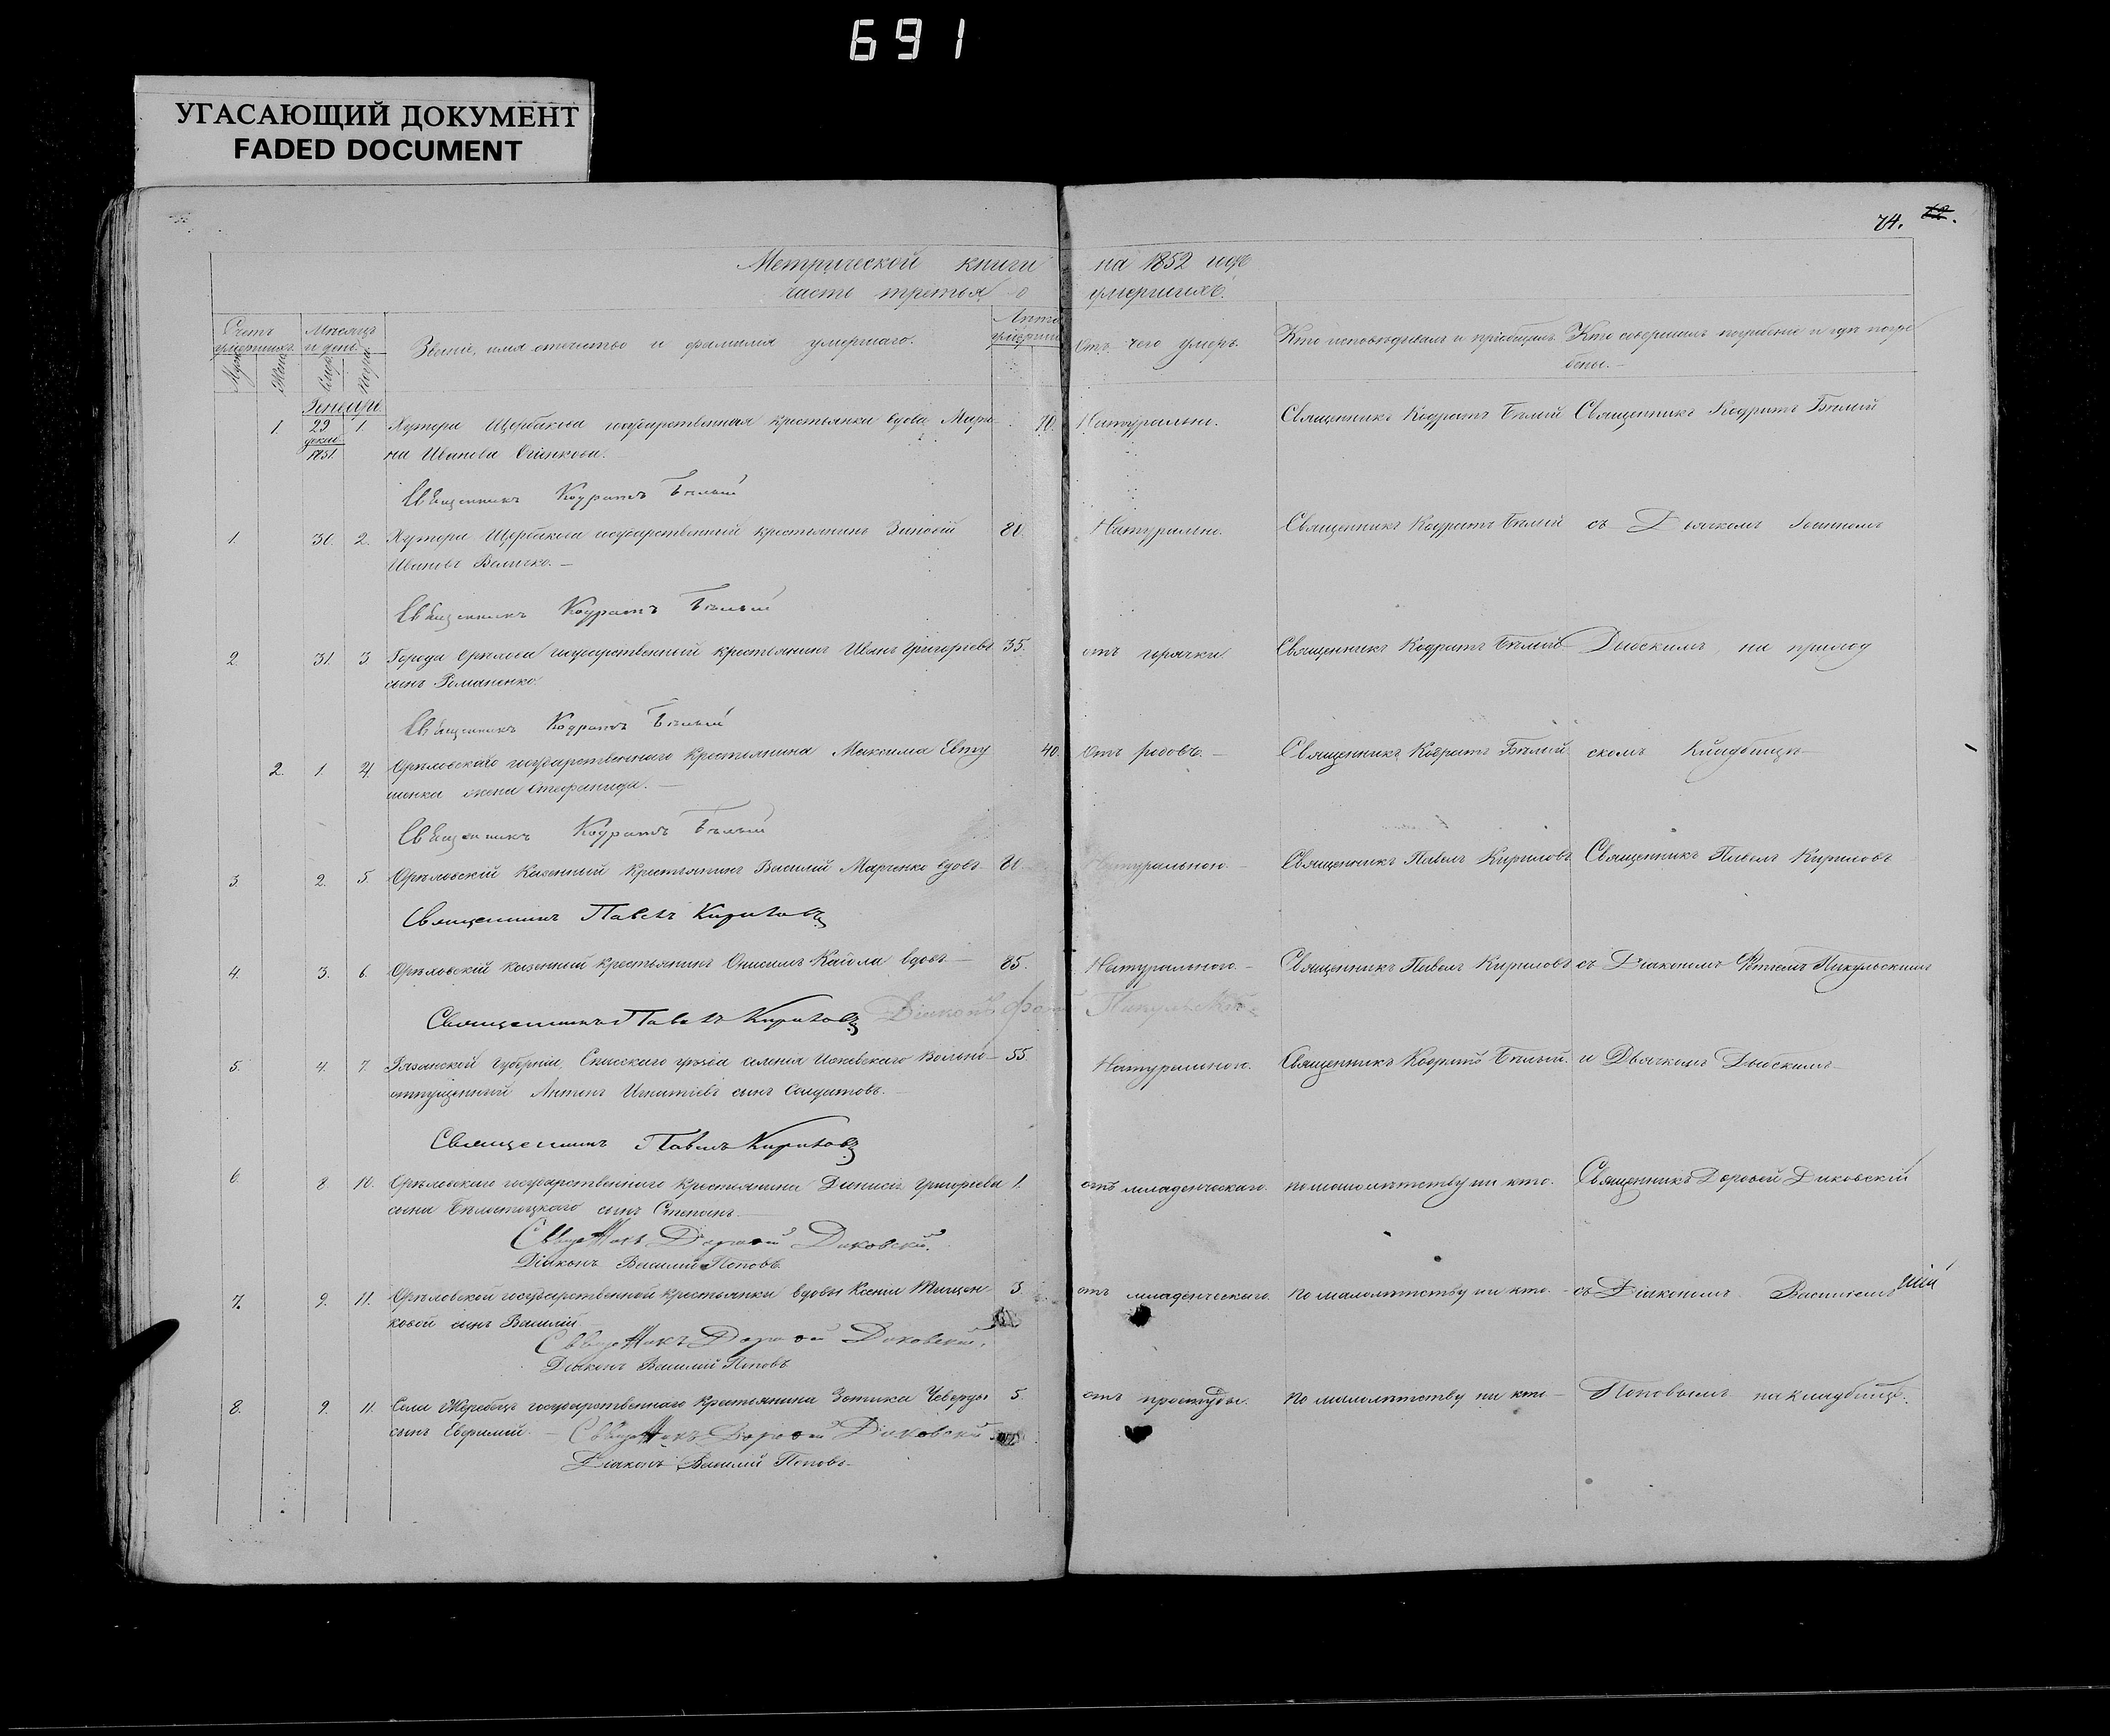 691
УГАСАЮЩИЙ ДОКУМЕНТ
FADED DOCUMENT
74. 68.
Метрической книги на 1852 годъ
часть третья о умершихъ.
Счетъ умершихъ. Мѣсяцъ и день. Звание, имя отчество и фамилия умершаго. Лѣта умершихъ Отъ чего умеръ. Кто исповѣдывалъ и приобщалъ. Кто совершалъ погребение и гдѣ погре
бены.
Генварь.
1 29 1. Хутора Щербакова государственная крестьянка вдова Мари- 70. Натурально. Священникъ Кодратъ Бѣлый Священникъ Кодратъ Бѣлый
1851. на Иванова
Священникъ Кодратъ Бѣлый
1. 30. 2. Хутора Щербакова государственный крестьянинъ Зиновій 80. Натурально. Священникъ Кодратъ Бѣлый съ Дьячкомъ Іоанномъ
Ивановъ Величко.
Священникъ Кодратъ Бѣлый
2. 31. 3 Города Орѣхова государственный крестьянинъ Иванъ Григорьевъ 35. отъ горячки Священникъ Кодратъ Бѣлый на приход
сынъ Романенко.
Священникъ Кодратъ Бѣлый
2. 1. 4. Орѣховскаго государственнаго крестьянина Максима Евту 40. Отъ родовъ. Священникъ Кодратъ Бѣлый скомъ кладбищѣ
шенка жена Стефанида.
Священникъ Кодратъ Бѣлый
3. 2. 5. Орѣховскій казенный крестьянинъ Василій Марченко вдовъ Натуральною. Священникъ Павелъ Кириловъ Священникъ Павелъ Кириловъ
Священникъ Павелъ Кириловъ
4. 3. 6. Орѣховскій казенный крестьянинъ Онисимъ вдовъ 85. Натурального. Священникъ Павелъ Кириловъ съ Діакономъ Фотіемъ Пикульскимъ
Священникъ Павелъ Кириловъ Діаконъ Фотій Пикульскій
5. 4. 7. Рязанской губерніи, Спасскаго уѣзда имѣния Ижевскаго Вольно- 55. Натуральною. Священникъ Кодратъ Бѣлый. и Дьячкомъ
отпущенный Антонъ Игнатіевъ сынъ Солдатовъ.
Священникъ Павелъ Кириловъ
6. 8 10. Орѣховскаго государственнаго крестьянина Діонисія Григорьева 1. отъ младенческаго. по малолѣтству ни кто. Священникъ Дорофей Диковскій
сына Бѣлостоцкаго сынъ Степанъ.
Священникъ Дорофей Диковскій.
Діаконъ Василий Поповъ.
7. 9. 11. Орѣховской государственной крестьянки вдовы Ксеніи Тищен 3. отъ младенческаго. по малолѣтству ни кто. съ Діакономъ Василіемъ
ковой сынъ Василій.
Священникъ Дорофей Диковскій,
Діаконъ Василий Поповъ
8. 9. 11. Села Жеребца государственнаго крестьянина Зотика Чеверды 5. отъ простуды. по малолѣтству ни кто Поповымъ на кладбищѣ.
сынъ Евфимій. Священникъ Дорофей Диковскій
Діаконъ Василий Поповъ